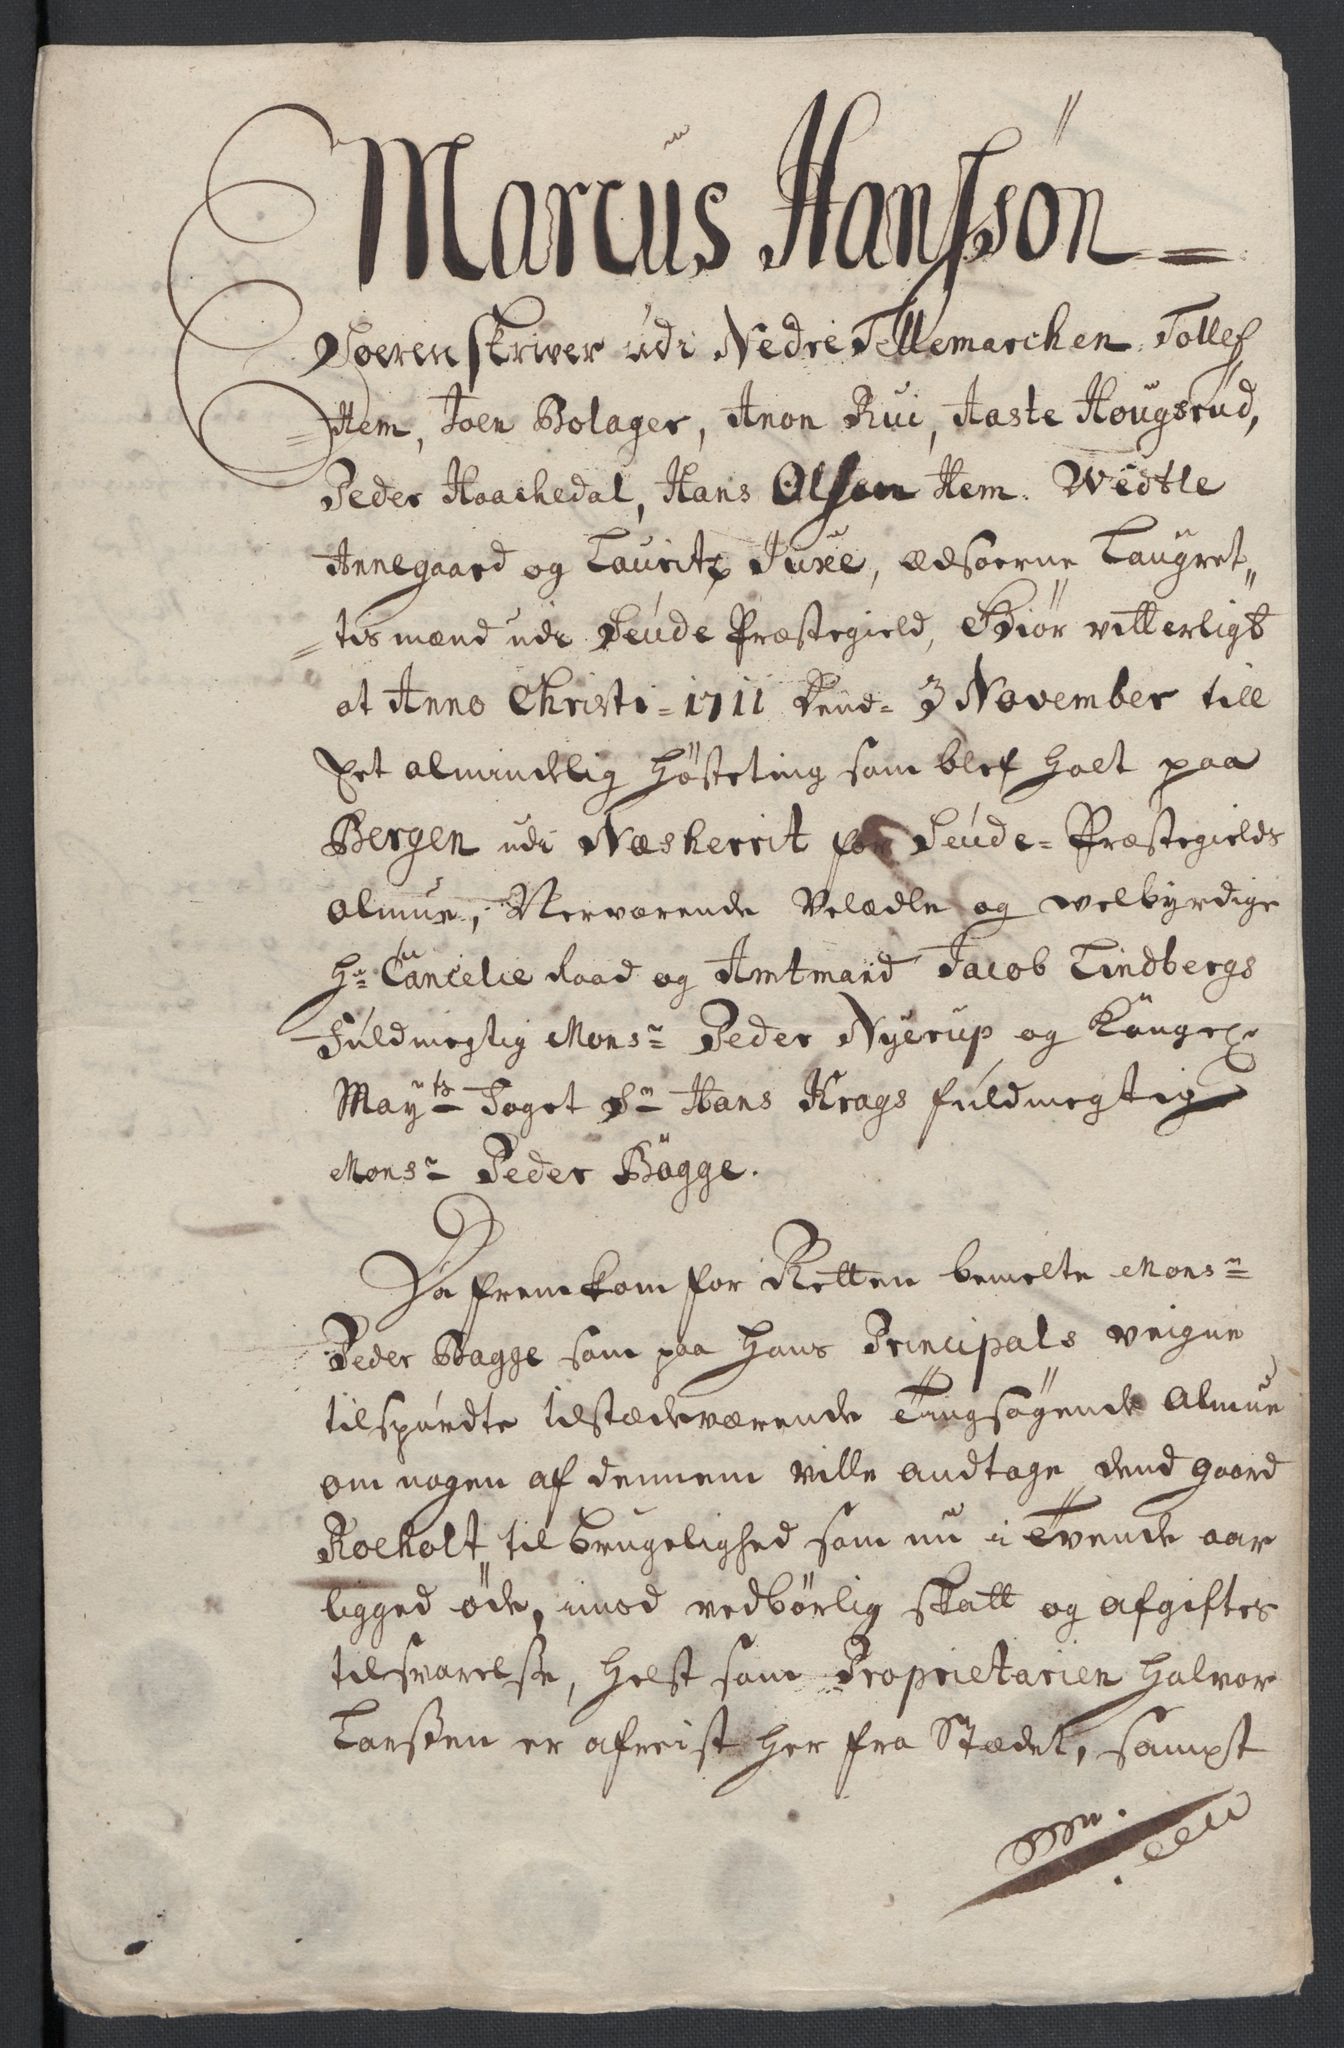 Marcus Hanssön
Soerenskriver udi Nedre Tellemarchen, Tollef
Hem, Joen Bolager, Anon Rui, Aaste Hougsrud,
Peder Haachedal, Hans Olsen Hem. Wedtle
Annegaard og Lauritz Juxe, Edsoerne Laugret„
tis mænd udi Seude Præstegield, Giör vitterligt
at Anno Christi 1711 dend 3 November till
et almindelig Hösteting som blef holt paa
Bergen udi Næsherrit for Seude Præstegields
almue, Nerværende Velædle og welbyrdige
Hr Cancelie Raad og Amtmand Jacob Lindbergs
Fuldmegtig Monsr Peder Nyerup og Kongel
Mayts Foget Sr Hans Krags fuldmegtig
Monsr Peder Bagge.
Da fremkom for Retten bemelte Monsr
Peder Bagge som paa Hans Principals veigne
tilspurdte tilstædeværende Tingsøgende Almue
om nogen af dennem ville andtage dend gaard
Roeholt til brugelighed som nu i Tvende aar
ligged öde, imod vedbörlig skatt og afgifters
tilsvarelse, helst som Proprietarien Halvor
Larssen er afreist her fra Stædet, sampt